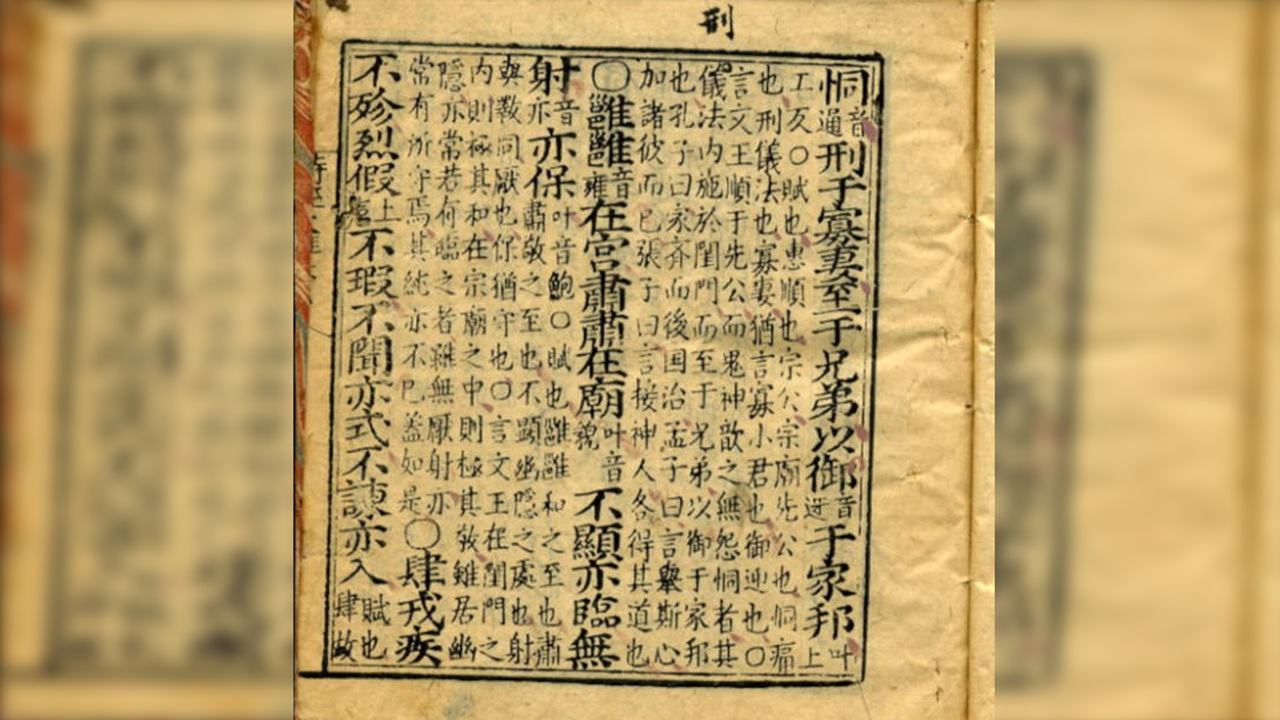 刑
恫音通刑于寡妻至于兄弟以御音迓于家邦叶卜
工反○賦也惠順也宗公宗廟先公也恫痛
也刑儀法也寡妻猶言寡小君也御迎也○
言文王順于先公而鬼神歆之無怨恫者其
儀法内施於閨門而至于兄弟以御于家邦
也孔子曰家齊而後国治孟子曰言舉斯心
加諸彼而已張子曰言接神人各得其道也
○雝雝音雍在宮肅肅在廟叶音貌不顯亦臨無
射音亦亦保叶音鮑○賦也雝雝和之至也肅
肅敬之至也不顯幽隱之處也射
與斁同厭也保猶守也○言文王在閨門之
内則極其和在宗廟之中則極其敬雖居幽
隱亦常若有臨之者雖無厭射亦
常有所守焉其純亦不已蓋如是○肆戎疾
不殄烈假上不瑕不聞亦式不諫亦入賦也肆故